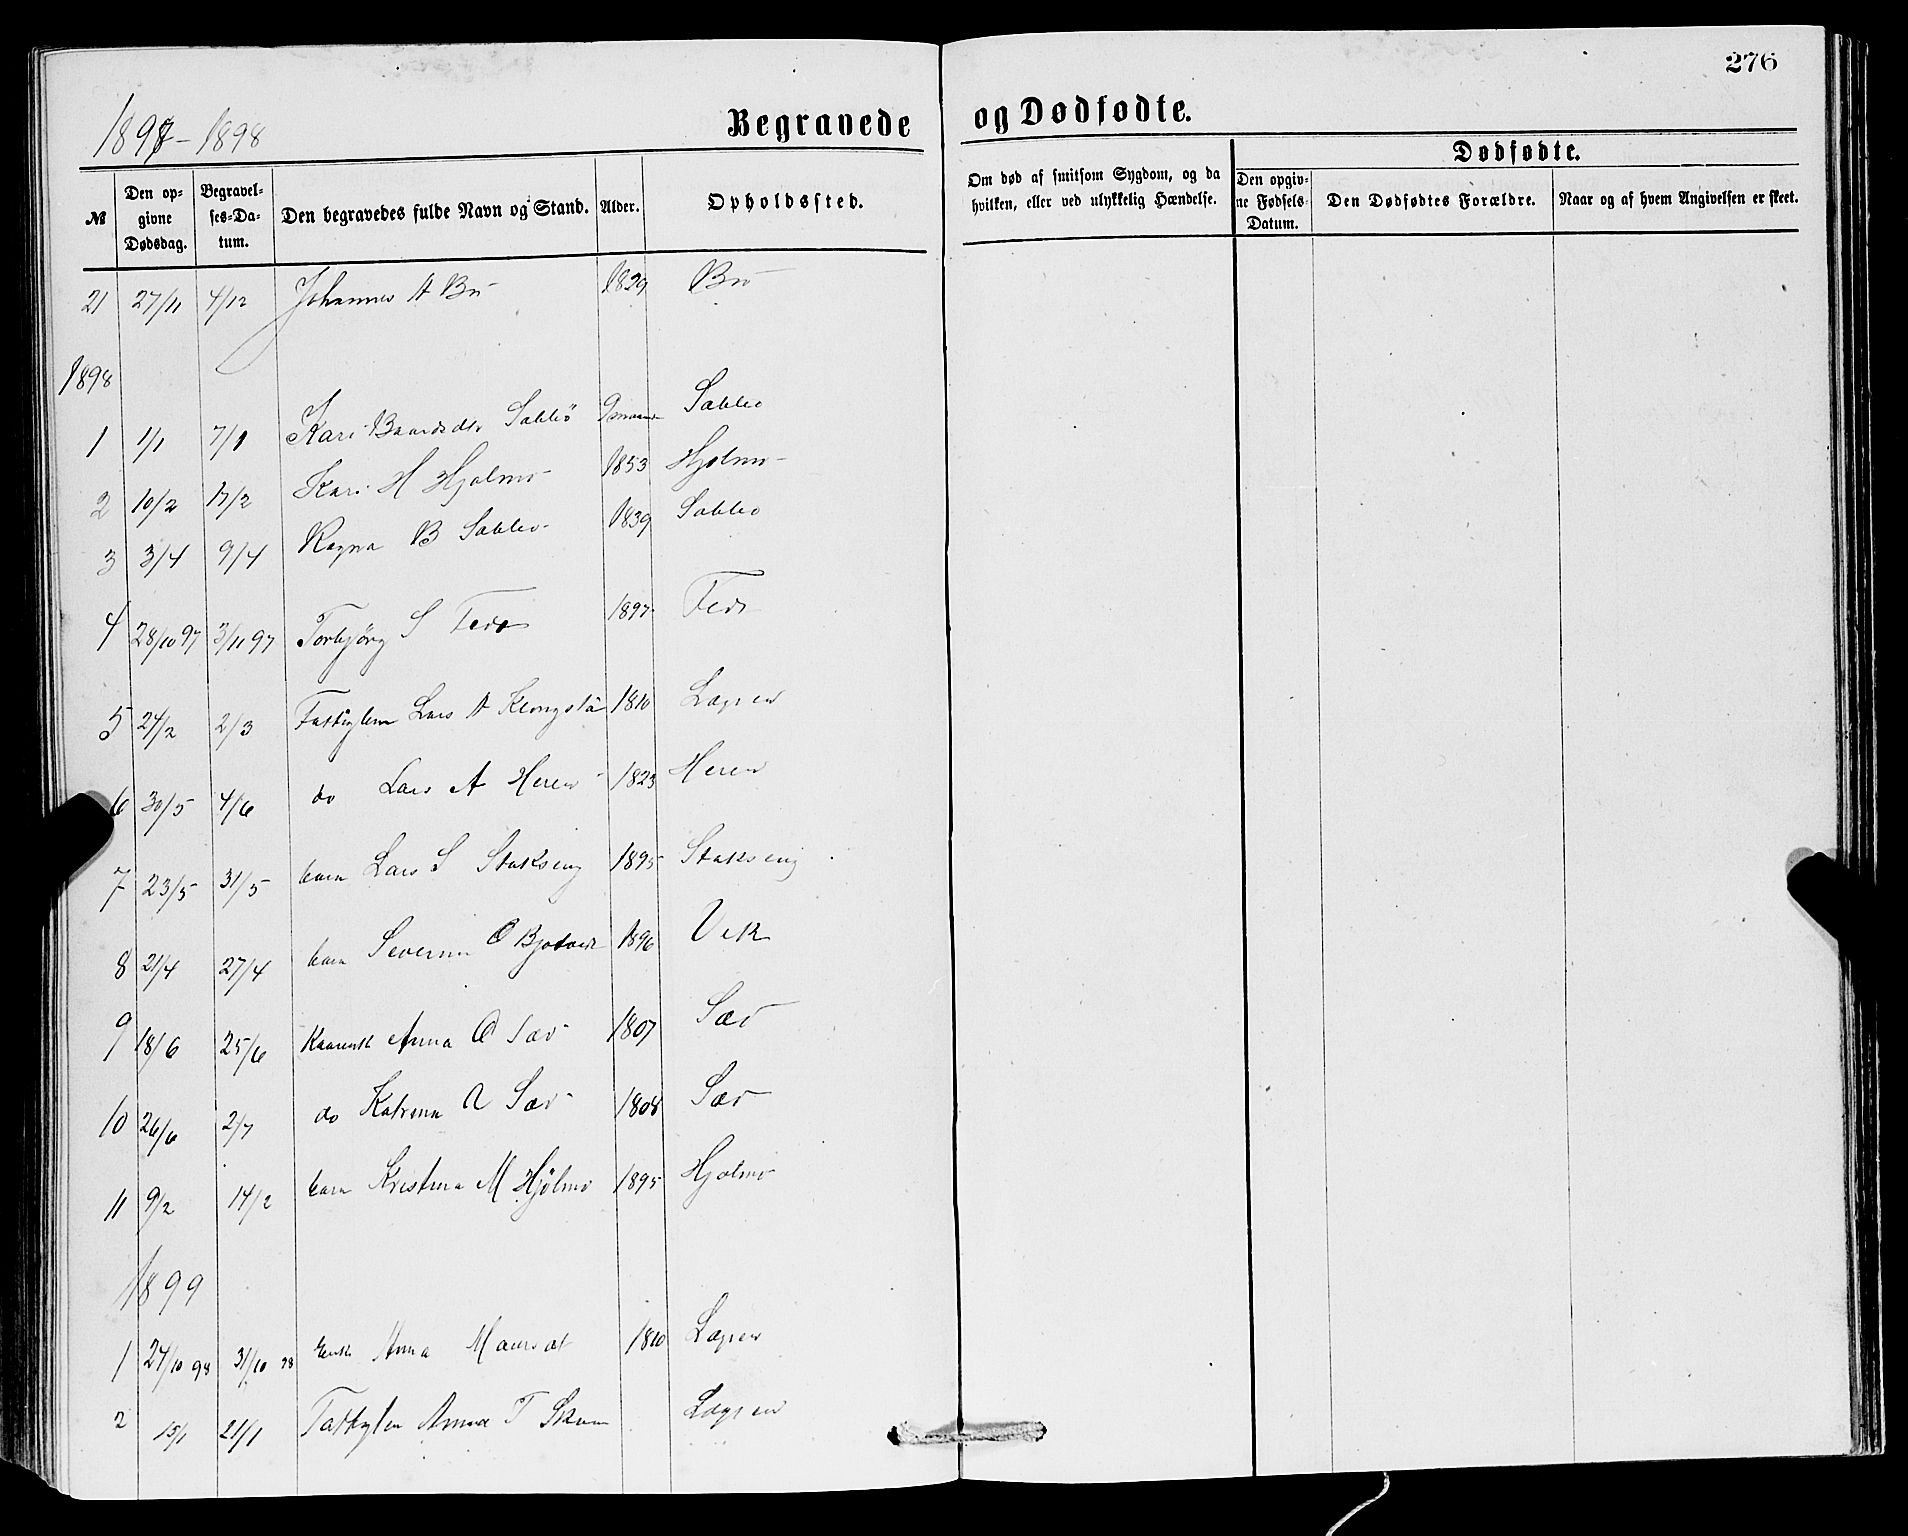 276
1897-1898
Begravede og Dødfødte.
№
Den opgivne Dødsdag.
Begravelses-Datum.
Den begravedes fulde Navn og Stand.
Alder.
Opholdssted.
Om død af smitsom Sygdom, og da hvilken, eller ved ulykkelig Hændelse.
Dødfødte.
Den opgivne Fødsels-Datum.
Den Dødfødtes Forældre.
Naar og af hvem Angivelsen er skeet.
21 27/11 4/12 Johannes A Bu 1829 Bu
1898
1 1/1 7/1 Kari Baardsdtr Sæbbø 9 maaned Sæbbø
2 10/2 17/2 Kari H Hjølmo 1853 Hjølmo
3 3/4 9/4 Ragna B Sæbbø 1839 Sæbbø
4 28/10 97 3/11 97 Torbjørg S Fede 1897 Fede
5 24/2 2/3 Fattiglem Lars A 1810 Lægen
6 30/5 4/6 do Lars A Heren 1823 Heren
7 23/5 31/5 barn Lars S Stakseng 1895 Stakseng
8 21/4 27/4 barn Severin O 1896 Vik
9 18/6 25/6 Kaarenk Anna O Sæv 1807 Sæv
10 26/6 2/7 do Katrina A Sæv 1808 Sæv
11 9/2 14/2 barn Kristina M Hjølmo 1895 Hjølmo
1899
1 24/10 98 31/10 98 Enke Anna Maursæt 1810 Lægen
2 15/1 21/1 Fattiglem Anna T Lægen